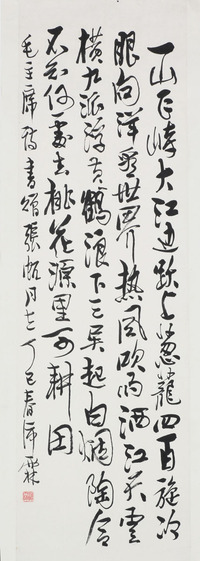 一山飞峙大江边跃上葱蘢四百旋冷
眼向洋看世界热风吹雨洒江天雲
横九派浮黄鹤浪下三吴起白烟陶令
不知何處去桃花源里可耕田
毛主席诗書贈張帆同志丁巳春